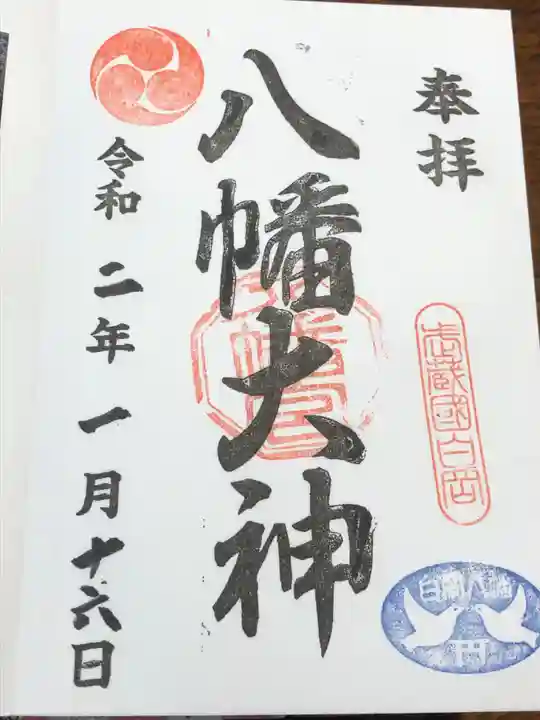 奉拝
武蔵國白岡
白岡八幡
八幡大神
八幡宮
令和二年一月十六日